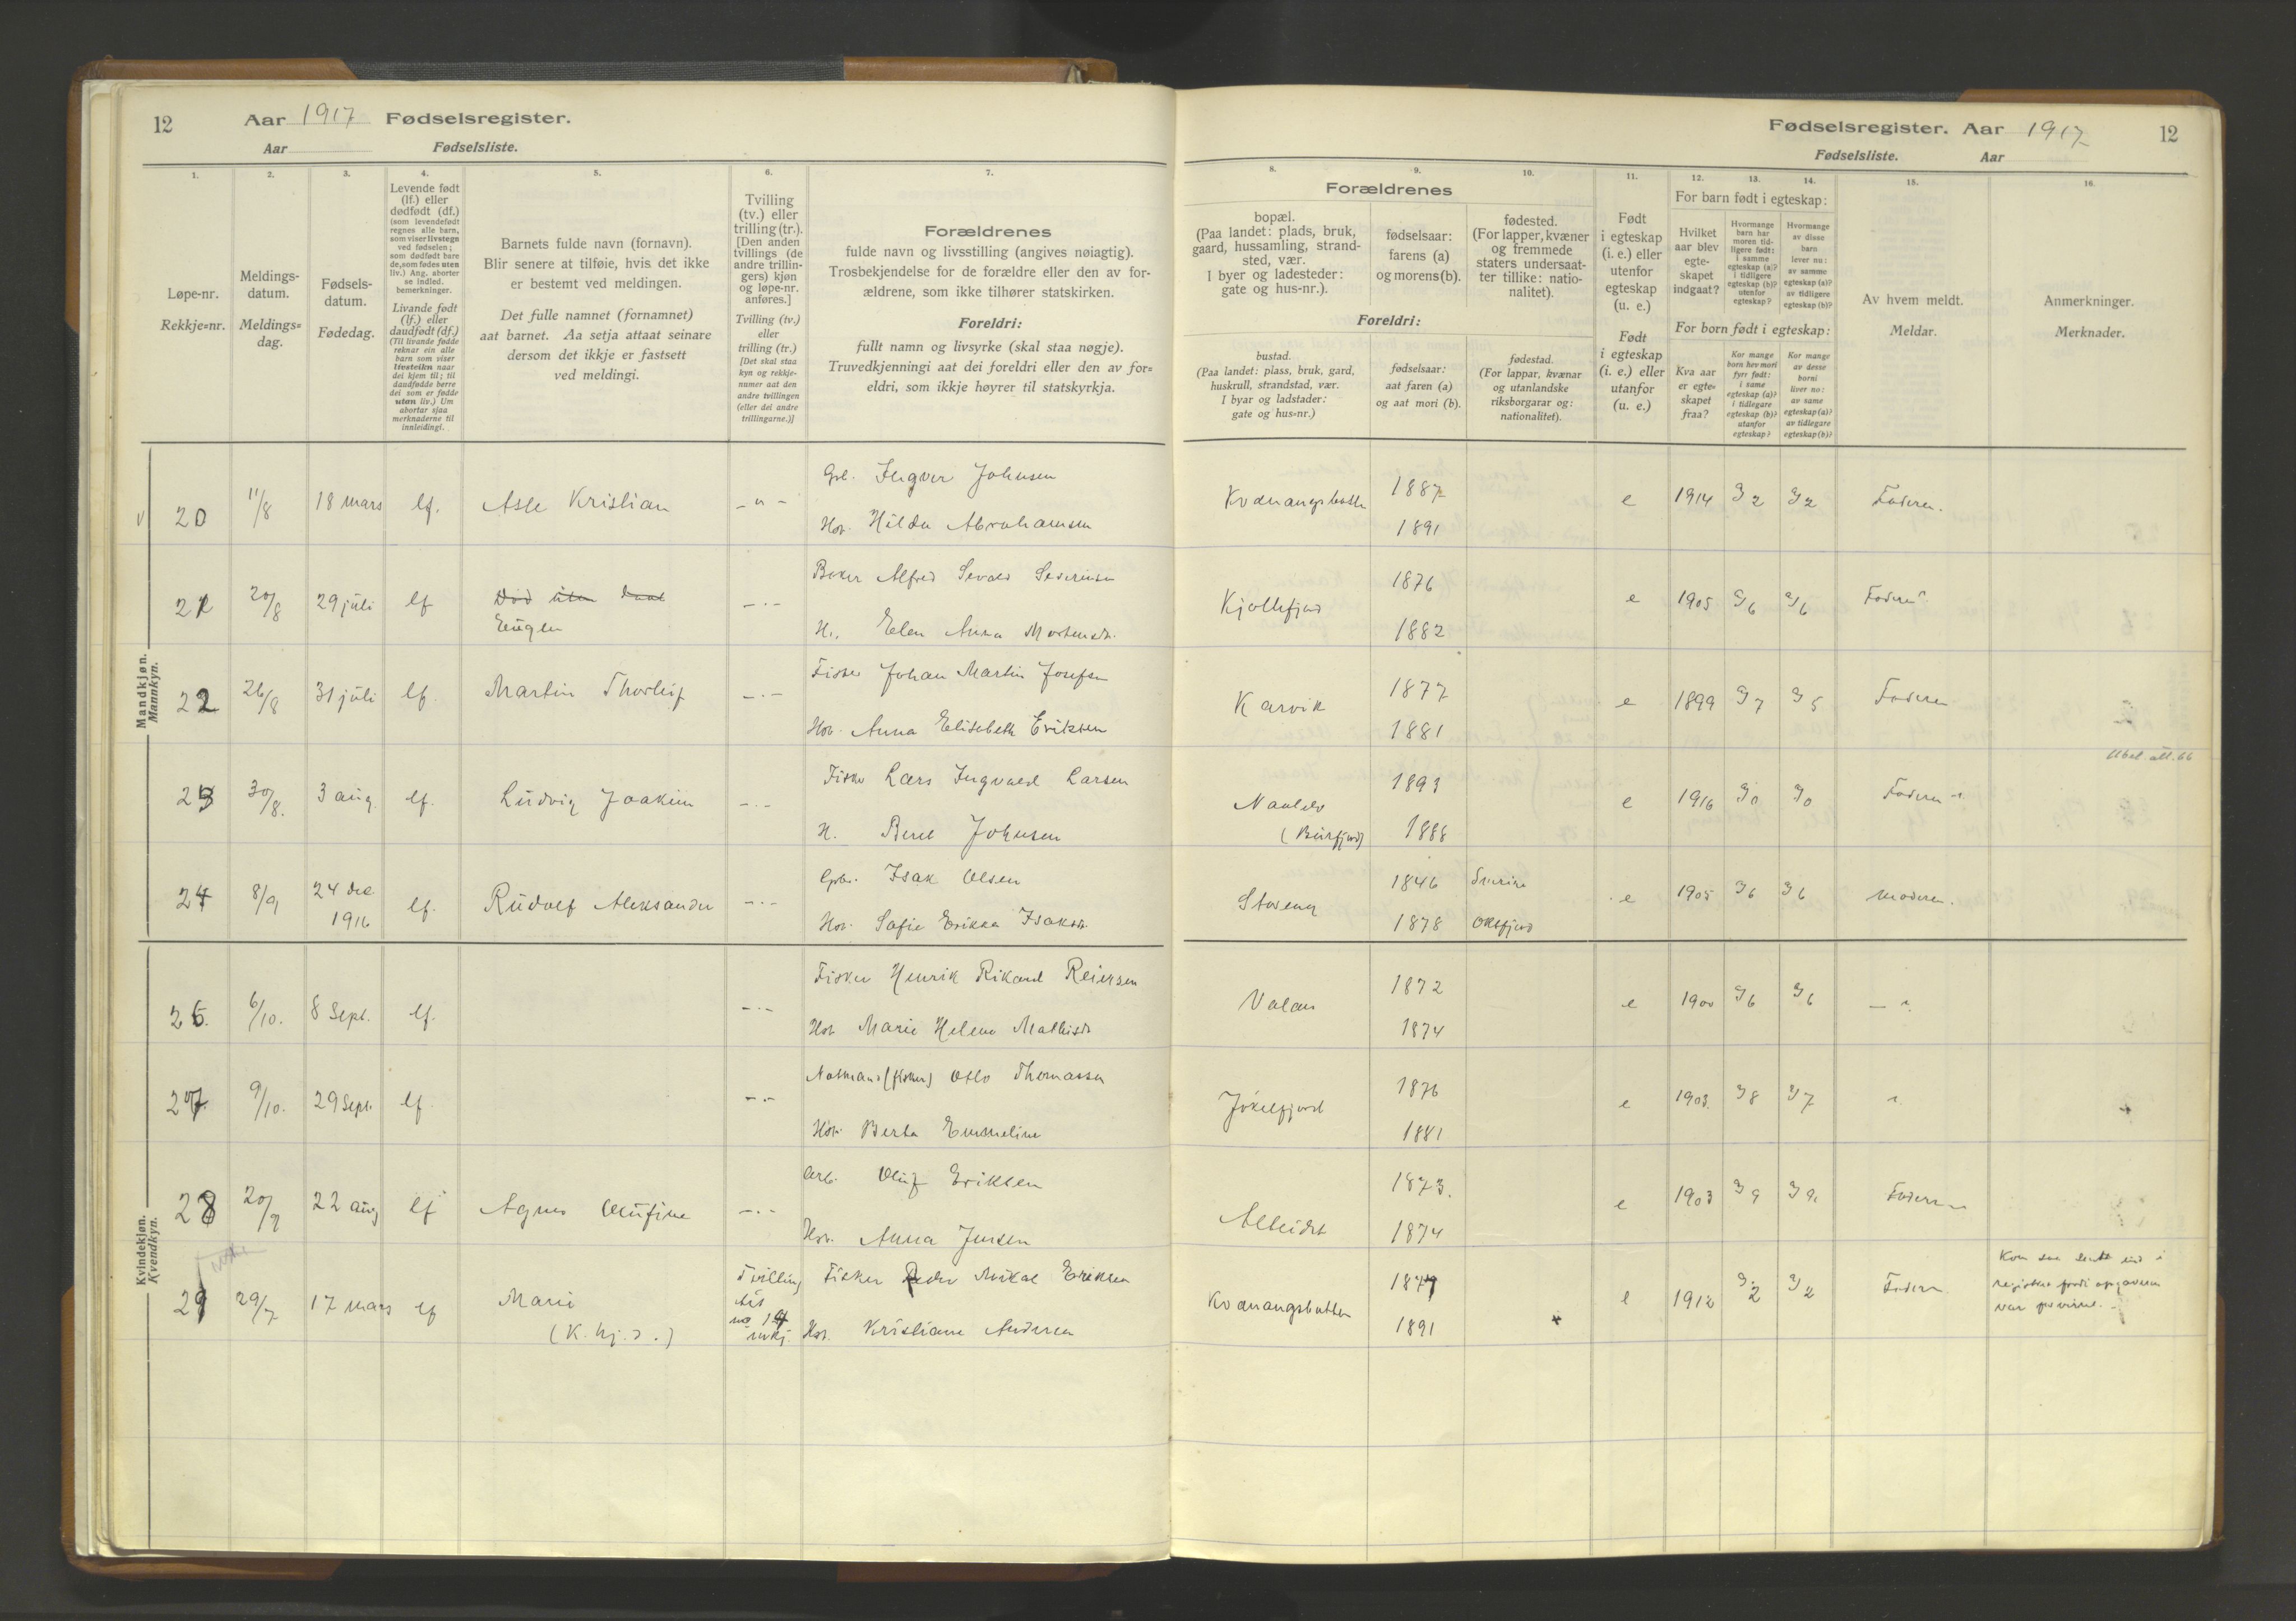 12
Aar 1917 Fødselsregister.
Aar
Fødselsliste.
1.
Løpe-nr.
Rekkje=nr.
2.
Meldings-
datum.
Meldings=
dag.
3.
Fødsels-
datum.
Fødedag.
4.
Levende født
(lf.) eller
dødfødt (df.)
(som levendefødt
regnes alle barn,
som viser livstegn
ved fødselen;
som dødfødt bare
de, som fødes uten
liv.) Ang. aborter
se indled.
bemerkninger.
Livande født
(lf.) eller
daudfødt (df.)
(Til livande fødde
reknar ein alle
barn som viser
livsteikn naar
dei kjem til; til
daudfødde berre
dei som er fødde
utan liv.) Um
abortar sjaa
merknaderne til
innleidingi.
5.
Barnets fulde navn (fornavn).
Blir senere at tilføie, hvis det ikke
er bestemt ved meldingen.
Det fulle namnet (fornamnet)
aat barnet. Aa setja attaat seinare
dersom det ikkje er fastsett
ved meldingi.
6.
Tvilling
(tv.) eller
trilling (tr.).
[Den anden
tvillings (de
andre trillin-
gers) kjøn
og løpe-nr.
anføres.]
Tvilling (tv.)
eller
trilling (tr.)
[Det skal staa
kyn og rekkje-
numer aat den
andre tvillingen
(eller dei andre
trillingarne.)]
7.
Forældrenes
fulde navn og livsstilling (angives nøiagtig).
Trosbekjendelse for de forældre eller den av for-
ældrene, som ikke tilhører statskirken.
Foreldri:
fullt namn og livsyrke (skal staa nøgje).
Truvedkjenningi aat dei foreldri eller den av for=
eldri, som ikkje høyrer til statskyrkja.
Fødselsregister. Aar 1917
12
Fødselsliste.
Aar
8.
9.
10.
Forældrenes
bopæl.
(Paa landet: plads, bruk,
gaard, hussamling, strand-
sted, vær.
I byer og ladesteder:
gate og hus-nr.).
fødselsaar:
farens (a)
og morens (b).
fødested.
(For lapper, kvæner
og fremmede
staters undersaat-
ter tillike: natio-
nalitet).
Foreldri:
bustad.
(Paa landet: plass, bruk, gard,
huskrull, strandstad, vær.
I byar og ladstader:
gate og hus-nr.)
fødselsaar:
aat faren (a)
og aat mori (b).
fødestad.
(For lappar, kvænar
og utanlandske
riksborgarar og:
nationalitet).
11.
Født
i egteskap
(i. e.) eller
utenfor
egteskap
(u. e.)
Født
i egteskap
(i. e.) eller
utanfor
(u. e.)
12.
13.
14.
For barn født i egteskap:
Hvilket
aar blev
egte-
skapet
indgaat?
Hvormange
barn har
moren tid-
ligere født:
i samme
egteskap (a)?
i tidligere
egteskap (b)?
utenfor
egteskap?
Hvormange
av disse
barn
lever nu:
av samme
egteskap (a)?
av tidligere
egteskap (b)?
For born født i egteskap:
Kva aar
er egte=
skapet
fraa?
Kor mange
born hev mori
fyrr født:
i same
egteskap (a)?
i tidlegare
egteskap (b)?
utanfor
egteskap?
Kor mange
av desse
borni
liver no:
av same
egteskap (a)?
av tidlegare
egteskap (b)?
15.
Av hvem meldt.
Meldar.
16.
Anmerkninger.
Merknader.
Mandkjøn.
Mannkyn.
20 11/8 18 mars lf. Asle Kristian
Grb. Ingver Johnsen
Hst. Hilda Abrahamsen
Kvænangsbotn 1887 e 1914 2 2 Faderen.
1891
21 20/8 29 juli lf Død uten daab
Eugen
Alfred Sevald Severinsen
H. Elen Anna Mortensdt.
Kjøllefjord 1876 e 1905 6 6 Faderen
1882
22 26/8 31 juli lf. Martin Thorleif
Fisker Johan Martin Josefsen
Hst. Anna Elisabeth Eriksen
Karvik 1877 e 1899 7 5 Faderen
1881
23 30/8. 3 aug. lf. Ludvig Joakim
Fisker Lars Ingvald Larsen
H. Beret Johnsen
(Burfjord) 1893 e 1916 0 0 Faderen
1888
24 8/9 24 dec 1916 lf. Rudolf Aleksander
Isak Olsen
Hst. Sofie Erikka Isaksdt.
Storeng 1846 e 1905 6 6 Moderen.
1878 Oksfjord
Kvindekjøn.
Kvendkyn.
26. 6/10. 8 Sept. lf.
Fisker Henrik Rikard Reiersen
Hst. Marie Helene Mathisdt.
Valan 1872 e 1900 6 6
1874
27. 9/10. 29 Sept. lf
(fisker) Otto Thomassen
Hst. Berta Emmeline
Jøkelfjord 1876 e 1903. 8 7
1881
28 20/9 22 aug lf Agnes Olufine
Arb. Oluf Eriksen
Hst. Anna Jensen
Alteidet 1873. e 1903 9 9 Faderen
1874
29 29/7 17 mars lf Marie
(K. hj. d.)
Tvilling
til
no 19
mkj.
Fisker Peder Mikal Eriksen
Hst. Kristiane Andersen
Kvænangsbotten e 1912 2 2 Faderen
1891
Kom saa sent ind i
registret fordi opgaven
var